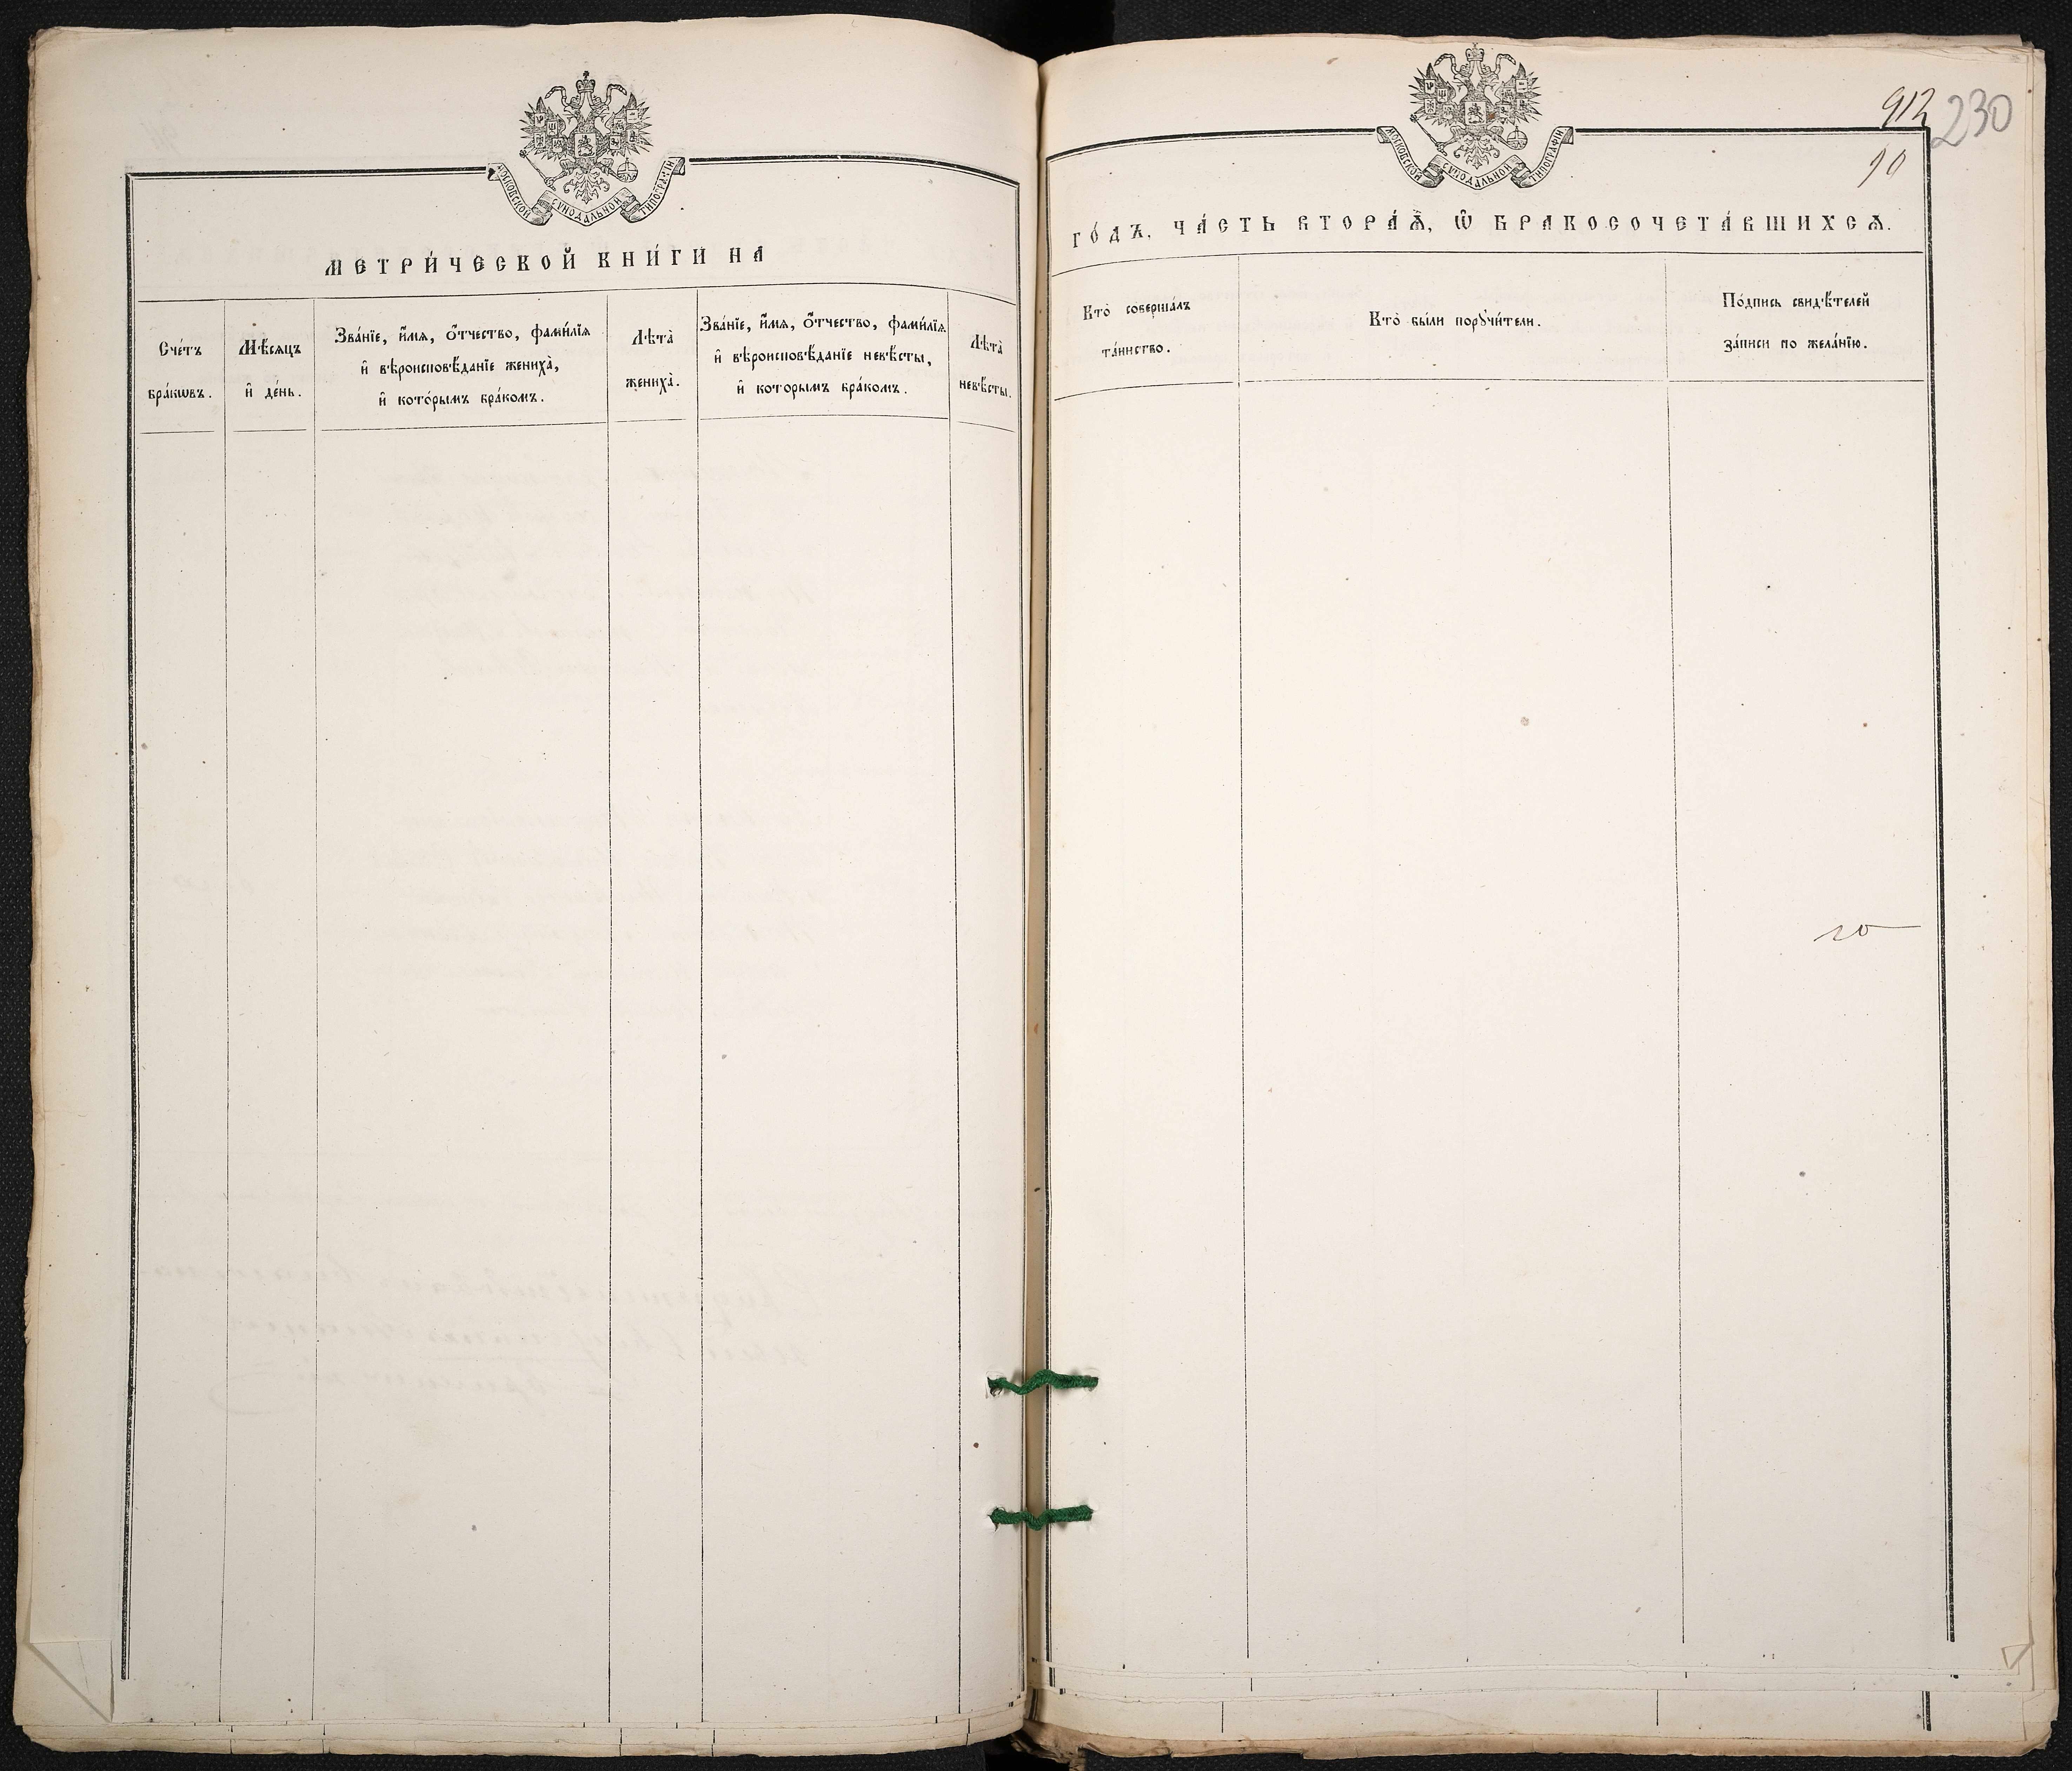 МОСКОВСКОЙ СѴНОДАЛЬНОЙ ТИПОГРАФІИ
МЕТРИ́ЧЕСКОЙ КНИ́ГИ НА
Сче́тъ
бра́кѡвъ.
Мѣ́сяцъ
и҆ де́нь.
Зва́нїе, и҆́мѧ, ѻ҆́тчество, фами́лїѧ
и҆ вѣроисповѣ́данїе жениха̀,
и҆ кото́рымъ бра́комъ.
Лѣ́та̀
жениха̀.
Зва́нїе, и҆́мѧ, ѻ҆́тчество, фами́лїѧ
и҆ вѣроисповѣ́данїе невѣ́сты,
и҆ которымъ бра́комъ.
Лѣ́та̀
невѣ́сты.
912
230
МОСКОВСКОЙ СѴНОДАЛЬНОЙ ТИПОГРАФІИ
10
ГО́ДЪ, ЧА́СТЬ ВТОРА́Ѧ, Ѡ҆ БРАКОСОЧЕТА́ВШИХСѦ.
Кто̀ соверша́лъ
та́инство.
Кто̀ бы́ли порꙋчи́тели.
По́дпись свидѣ́телей
за́писи по жела́нїю.